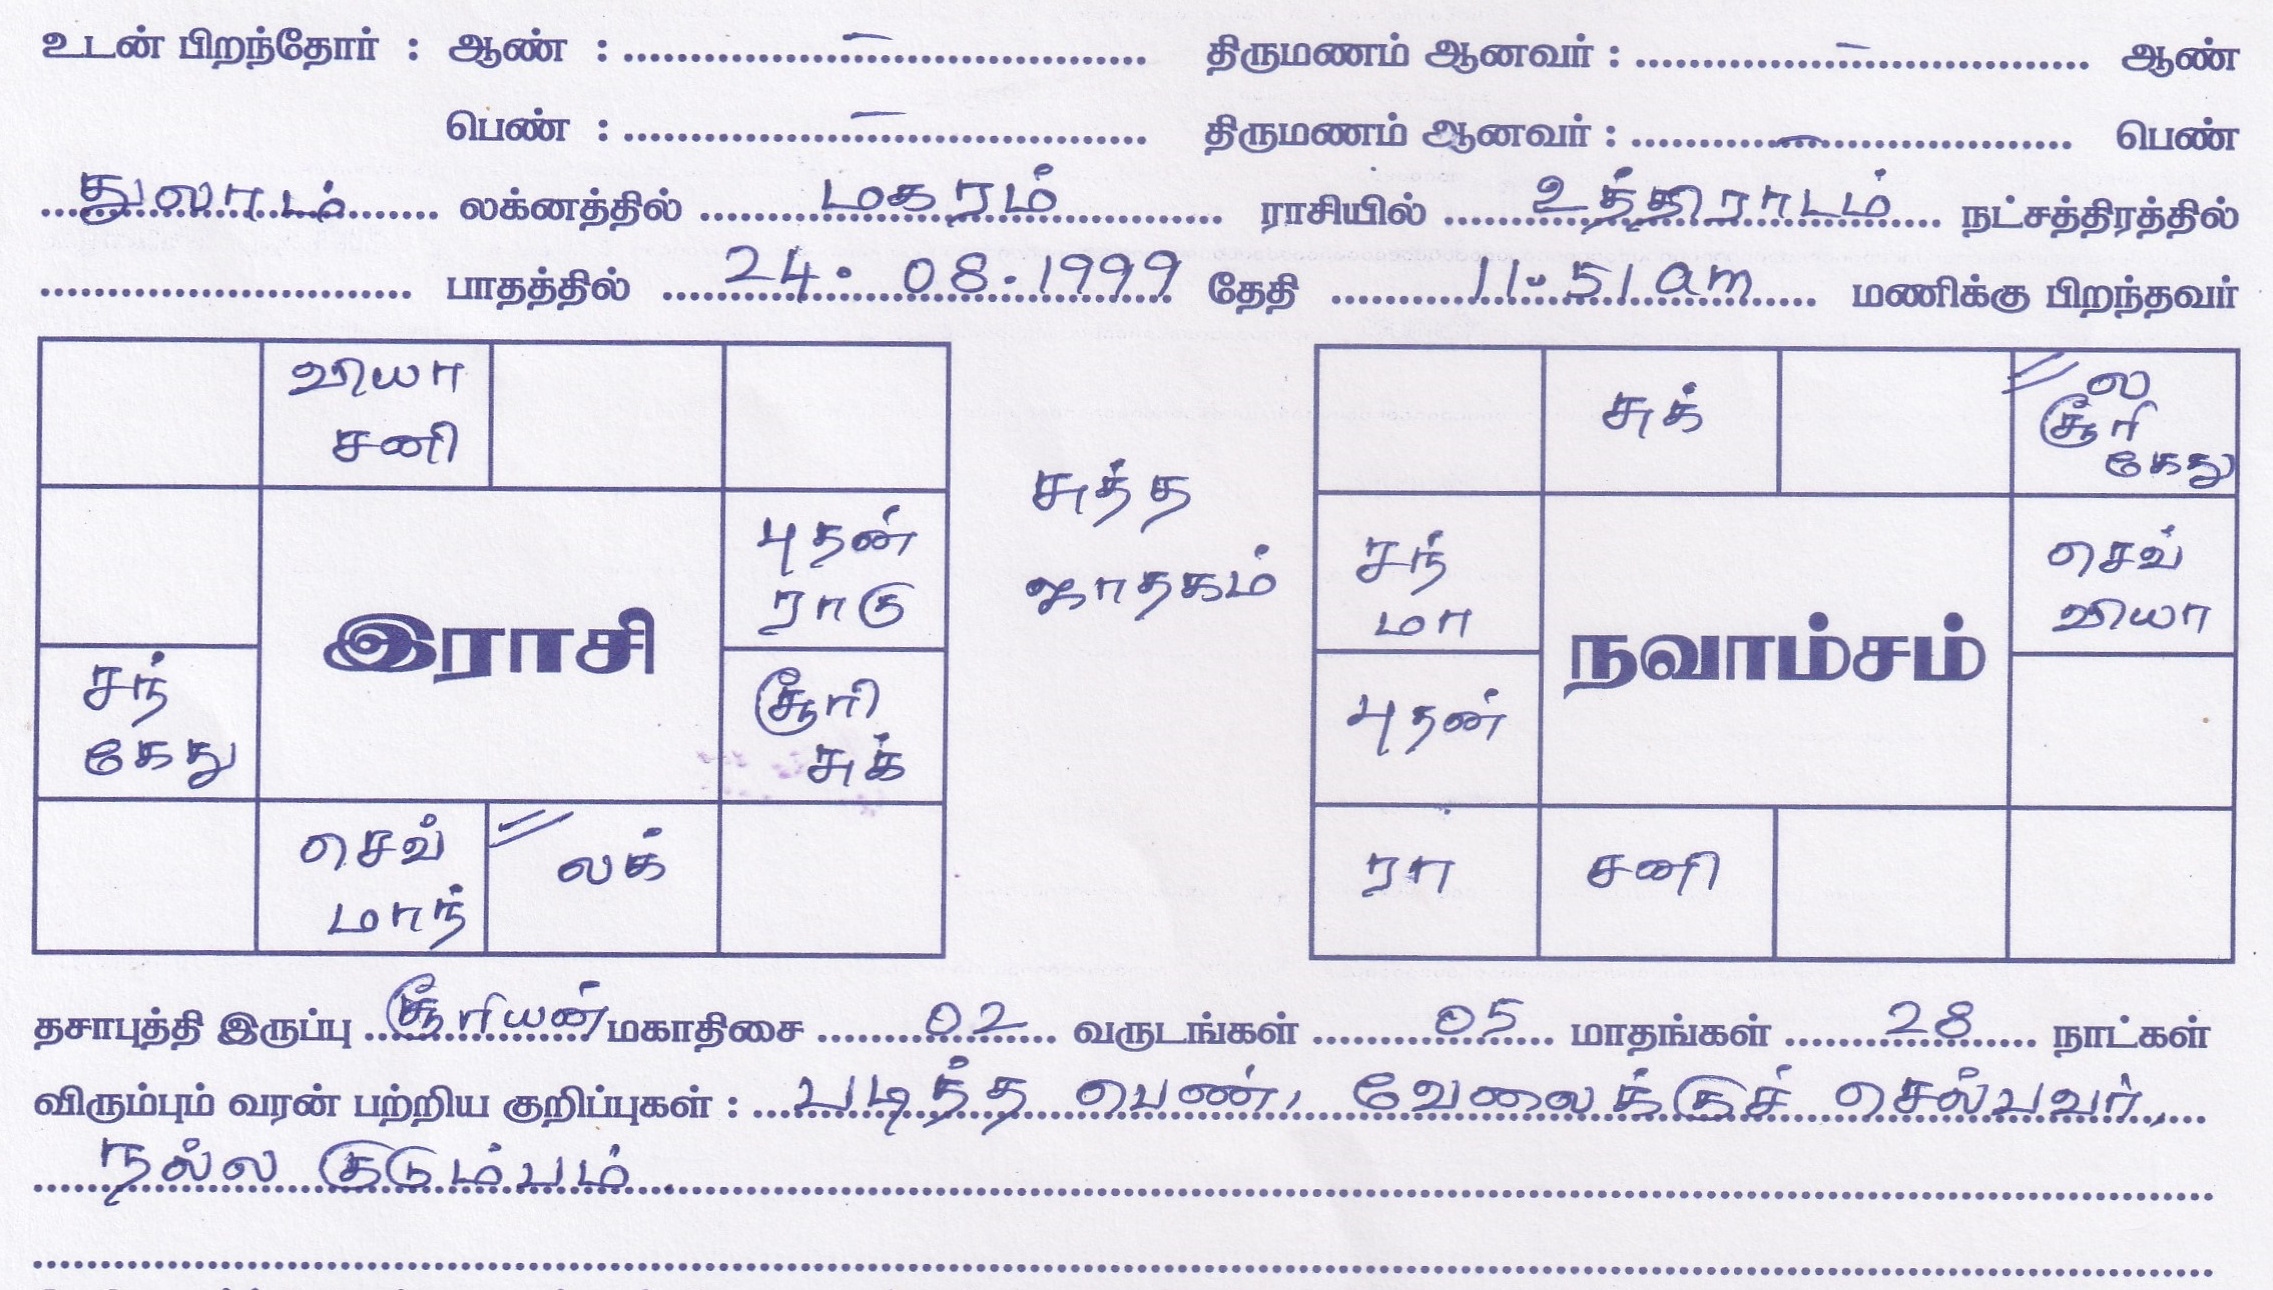 உடன் பிறந்தோர் : ஆண் : ..........–.......... திருமணம் ஆனவர் : ..........–.......... ஆண்
பெண் : ..........–.......... திருமணம் ஆனவர் : ..........–.......... பெண்
துலாடம் லக்னத்தில் மகரம் ராசியில் உத்திராடம் நட்சத்திரத்தில்
.......... பாதத்தில் 24. 08.1999 தேதி 11.51am மணிக்கு பிறந்தவர்
வியா
சனி
புதன்
ராகு
சந்
கேது
இராசி
சூரி
சுக்
செவ்
மாந்
லக்
சுத்த
ஜாதகம்
சுக்
ல
சூரி
கேது
சந்
மா
செவ்
வியா
புதன்
நவாம்சம்
ரா
சனி
தசாபுத்தி இருப்பு சூரியன் மகாதிசை 02 வருடங்கள் 05 மாதங்கள் 28 நாட்கள்
விரும்பும் வரன் பற்றிய குறிப்புகள் : படித்த பெண், வேலைக்குச் செல்பவர்,
நல்ல குடும்பம்.